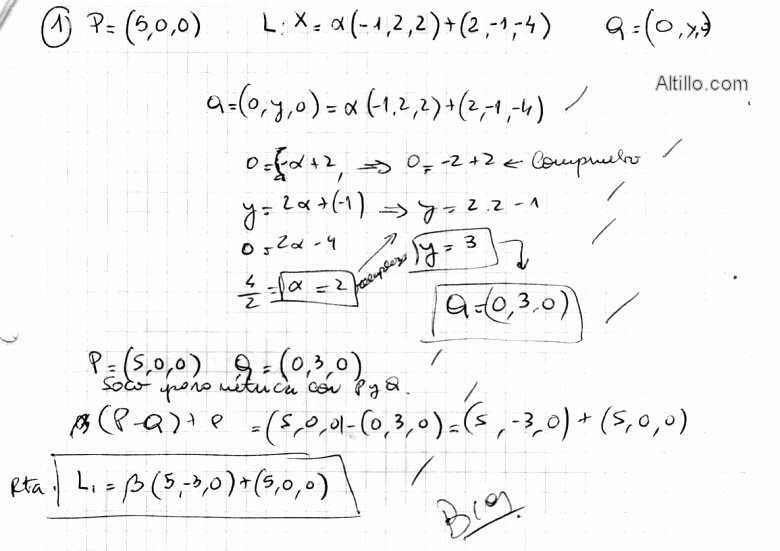 ① P = (5,0,0) L: X = α(-1,2,2)+(2,-1,-4) Q = (0,y,0)
Altillo.com
Q=(0,y,0) = α(-1,2,2)+(2,-1,-4)
0 = -α+2, ⇒ 0 = -2+2 ← Compruebo
y = 2α+(-1) ⇒ y = 2.2-1
0 = 2α-4 y = 3
4/2 = α = 2 reemplazo
Q=(0,3,0)
P = (5,0,0) Q = (0,3,0)
Saco paramétrica con P y Q.
β(P-Q)+P = (5,0,0)-(0,3,0) = (5,-3,0)+(5,0,0)
Rta. L₁ = β(5,-3,0)+(5,0,0)
Bien